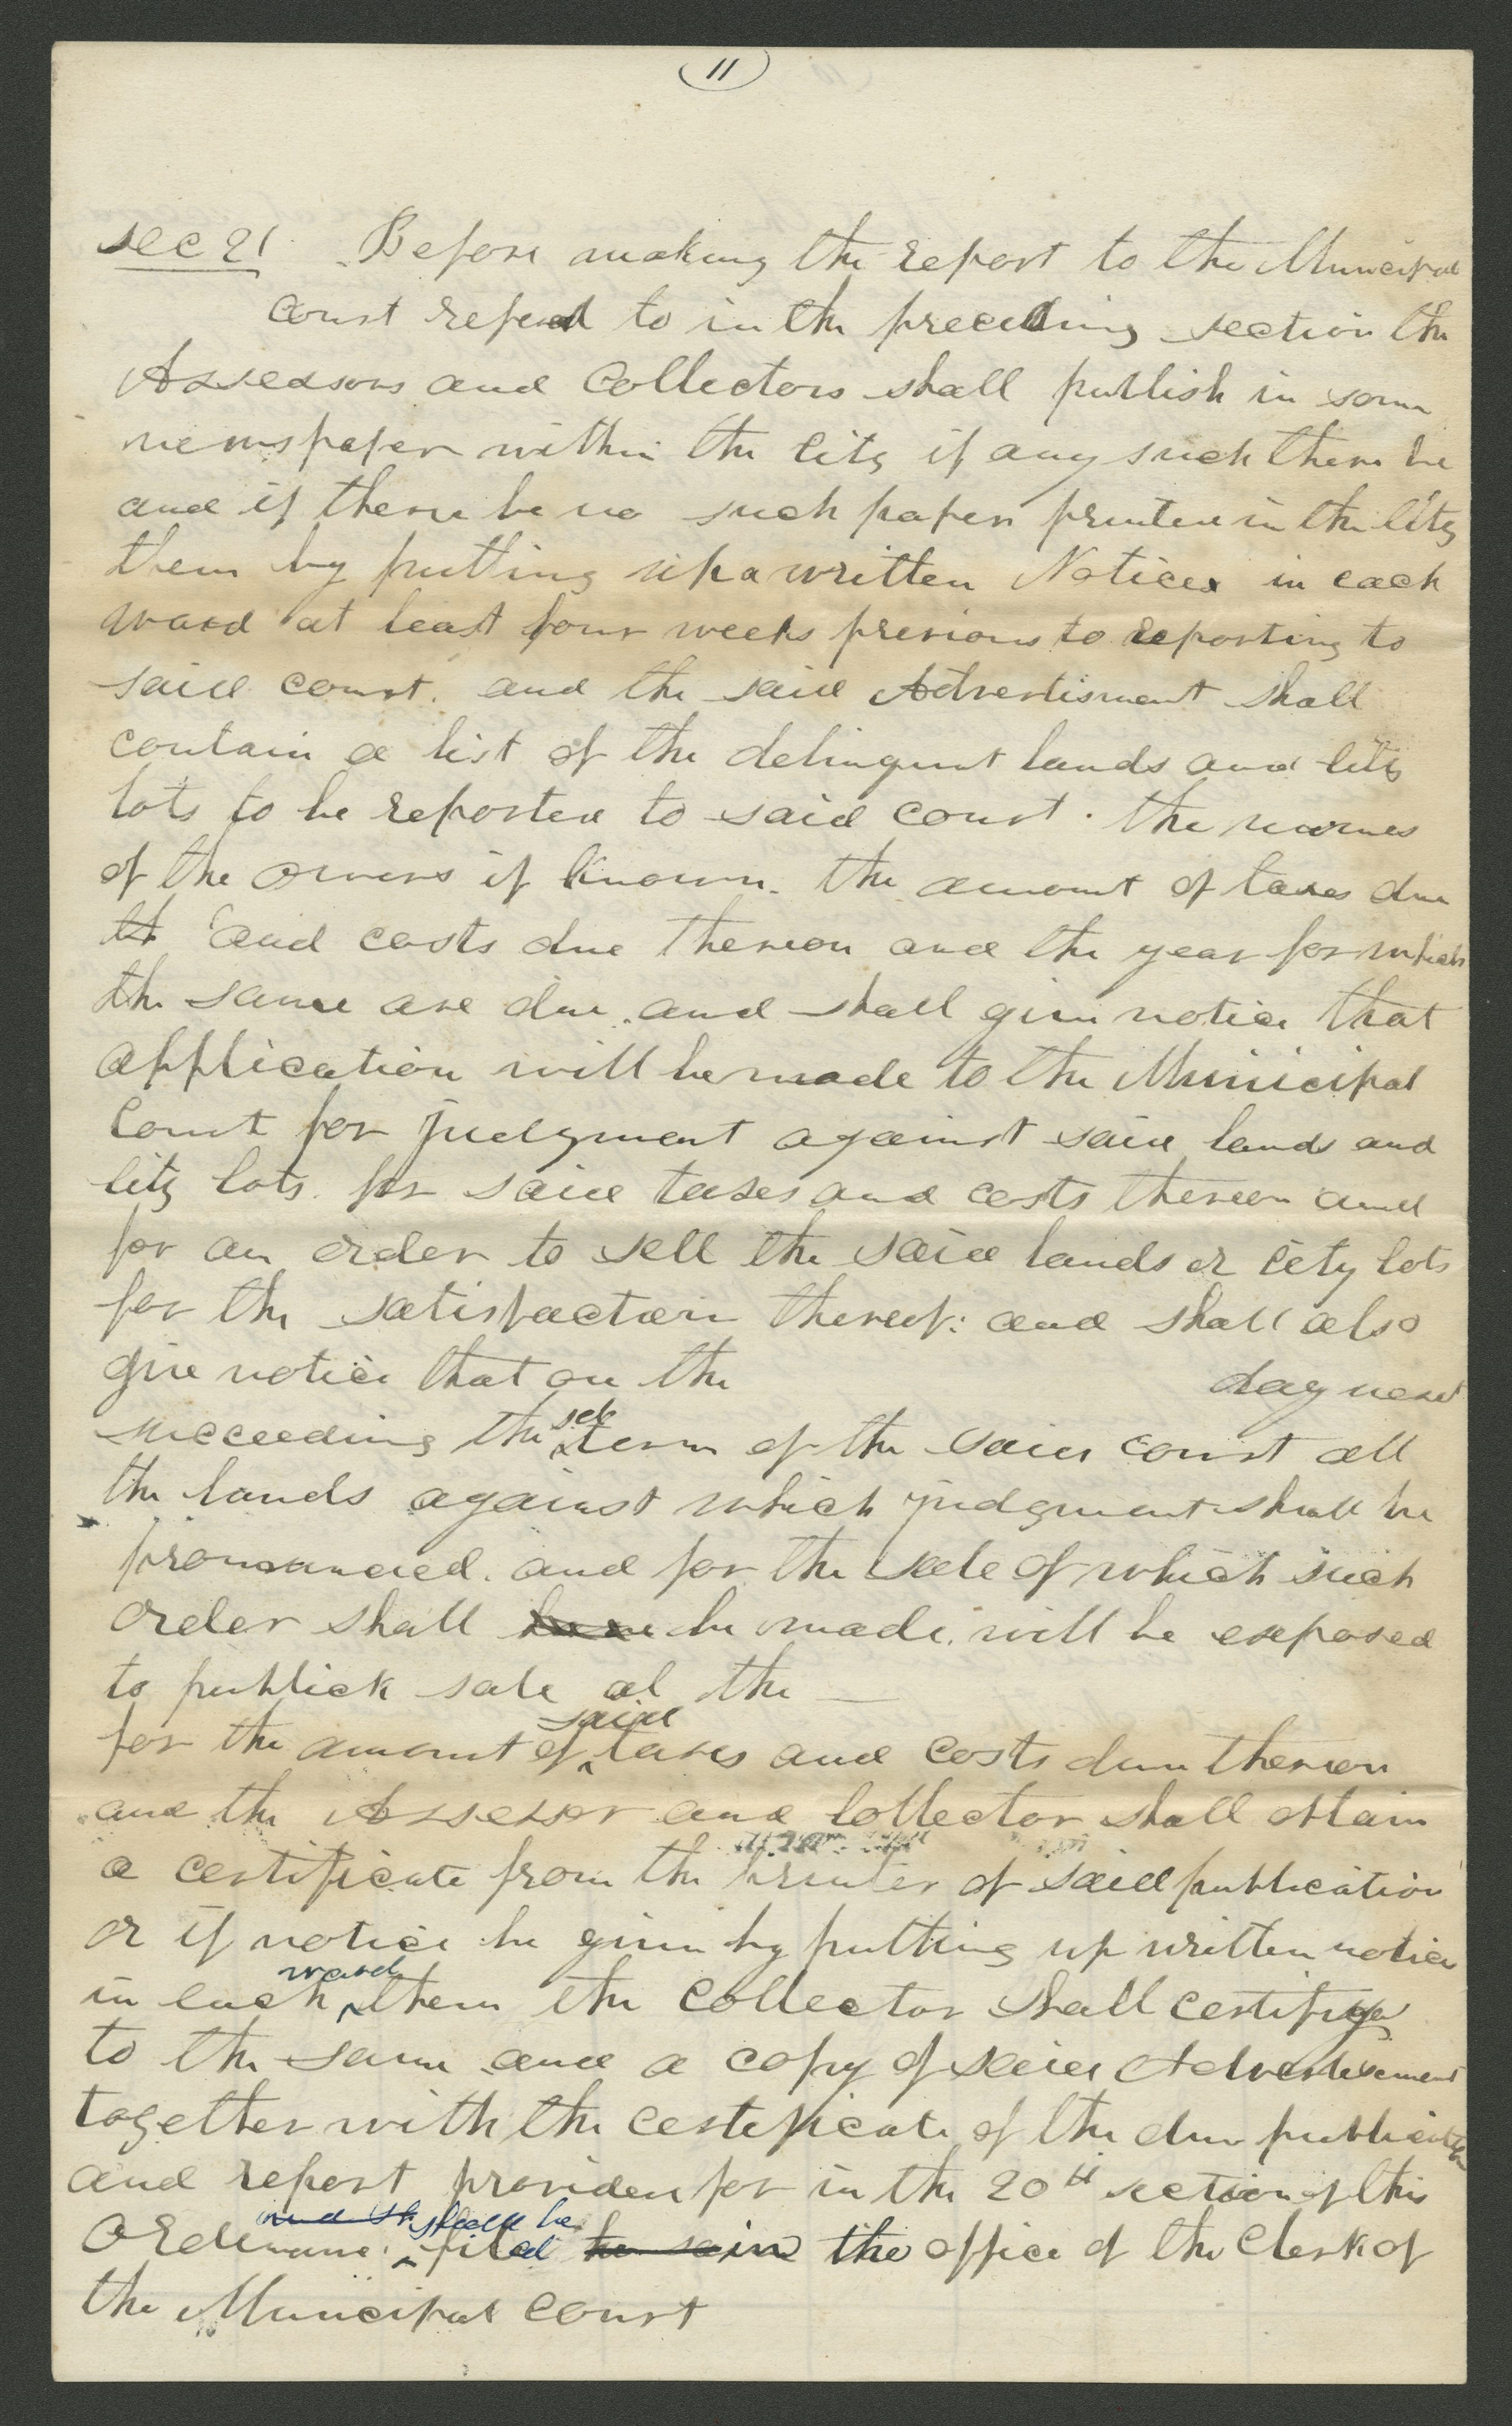 11
Sec 21 Before making the report to the Municipal
court refered to in the preceeding section the
Assessors and Collectors shall publish in some
newspaper within the City if any such there be
and if there be no such paper printed in the City
then by putting up a written Notices in each
ward at least four weeks previous to reporting to
said court. and the said Advertisment shall
contain a list of the delinquent lands and City
lots to be reported to said court. the names
of the owners if known. the amount of taxes due
and costs due thereon and the year for which
the same are due. and shall give notice that
application will be made to the Municipal
Court for judgment against said lands and
City lots. for said taxes and costs thereon and
for an order to sell the said lands or City lots
for the satisfaction thereof: and shall also
give notice that on the day next
succeeding the
term of the said court all
the lands against which judgment shall be
pronounced. and for the sale of which such
order shall be made. will be exposed
to publick sale at the —
for the amount of said taxes and costs due thereon
and the Assessor and Collector shall obtain
a certificate from the Printer of said publication
or if notice be given by putting up written notice
in each ward then the Collector shall certify
to the same and a copy of said Advertisement
together with the certificate of the due publication
and report provided for in the 20th section of this
Ordinance. shall be filed in the office of the Clerk of
the Municipal Court